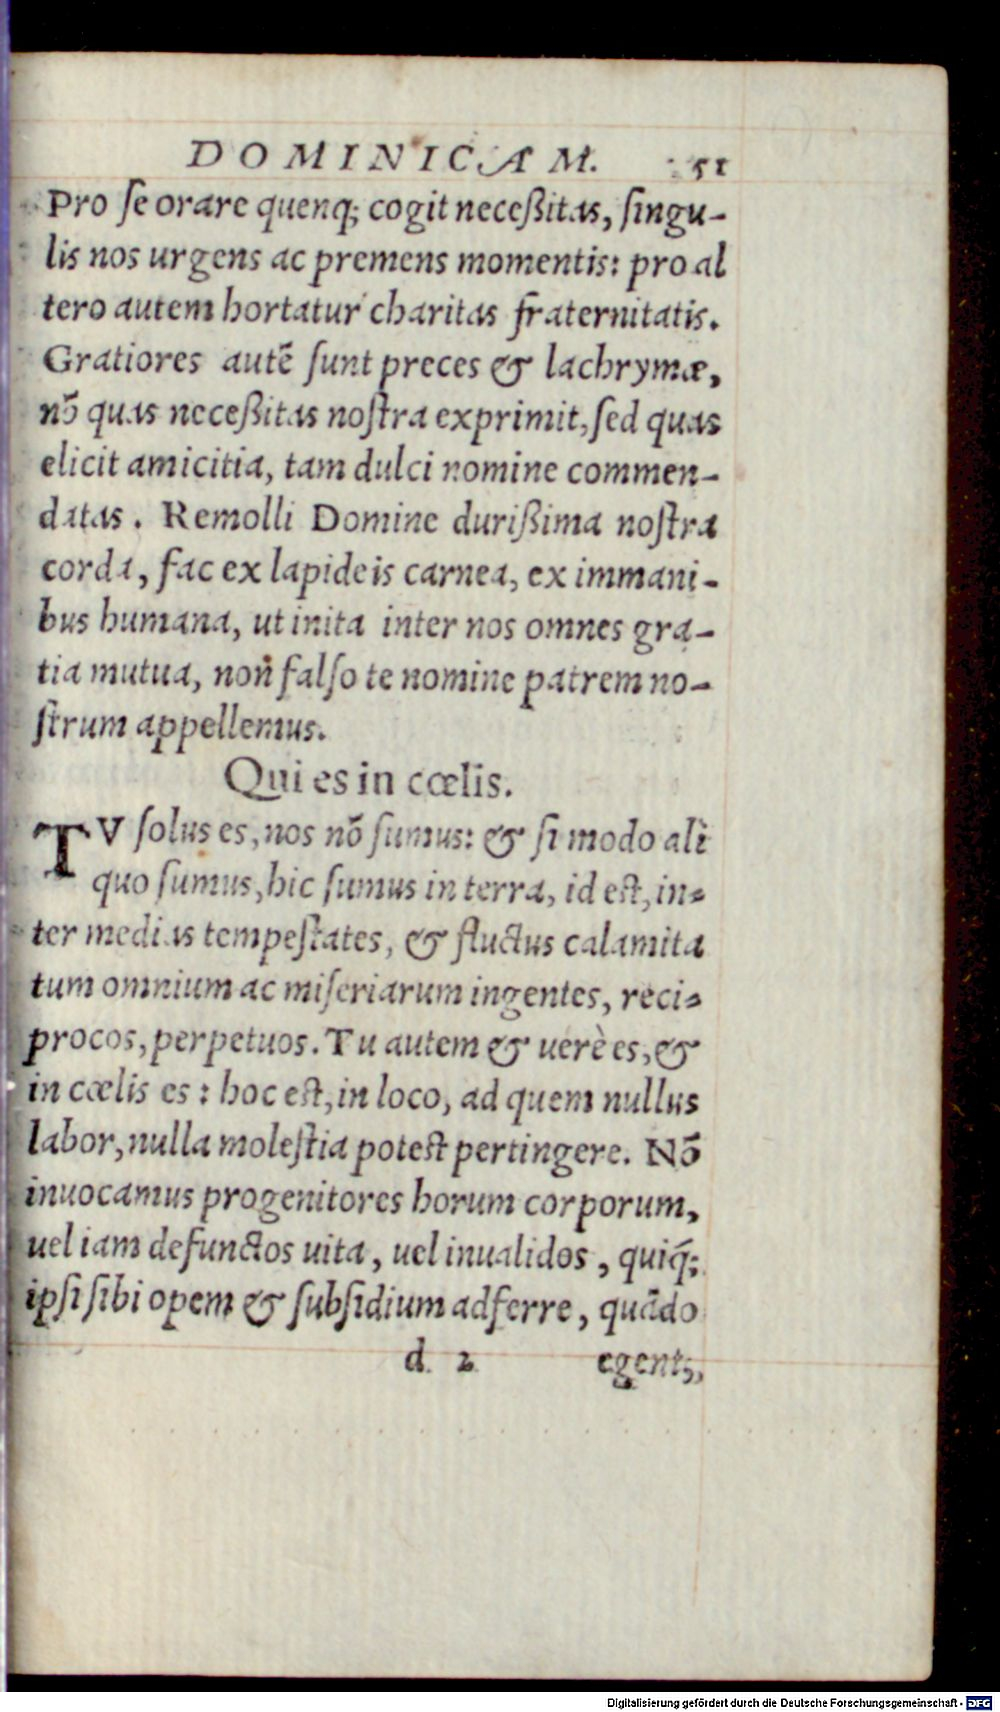 DOMINICAM. 51
Pro ſe orare quenq; cogit neceßitas, ſingu-
lis nos urgens ac premens momentis: pro al
tero autem hortatur charitas fraternitatis.
Gratiores autē ſunt preces & lachrymæ,
nō quas neceßitas noſtra exprimit, ſed quas
elicit amicitia, tam dulci nomine commen-
datas. Remolli Domine durißima noſtra
corda, fac ex lapideis carnea, ex immani-
bus humana, ut inita inter nos omnes gra-
tia mutua, non falſo te nomine patrem no-
ſtrum appellemus.
Qui es in cœlis.
TV ſolus es, nos nō ſumus: & ſi modo ali
quo ſumus, hic ſumus in terra, id eſt, in-
ter medias tempeſtates, & fluctus calamita
tum omnium ac miſeriarum ingentes, reci-
procos, perpetuos. Tu autem & uerè es, &
in cœlis es: hoc eſt, in loco, ad quem nullus
labor, nulla moleſtia poteſt pertingere. Nō
inuocamus progenitores horum corporum,
uel iam defunctos uita, uel inualidos, quiq̃;
ipſi ſibi opem & ſubſidium adferre, quādo
d 2 egent,
Digitalisierung gefördert durch die Deutsche Forschungsgemeinschaft - DFG